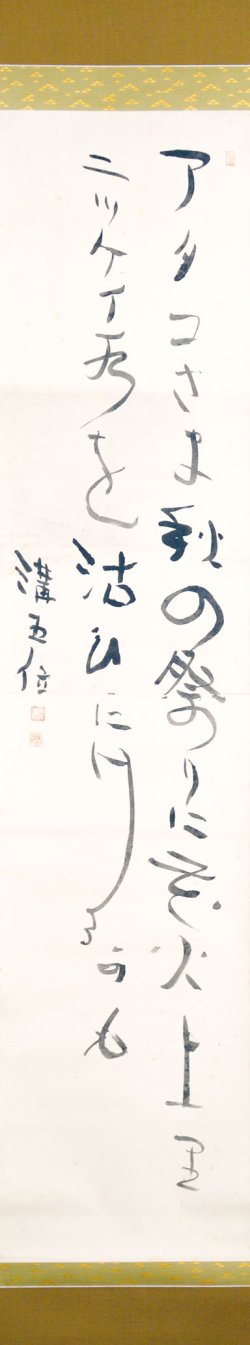 アタコさま秋の祭りに花火上里
ニツケイ を沽ひにける可も
溝五位